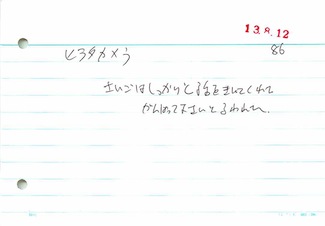 13.8.12
86
ヒラタカメラ
さいごはしっかりと話をきいてくれて
がんばって下さいと言われた。